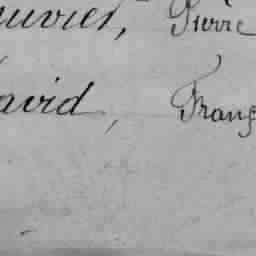 uvier, Pierre
avid, Franç